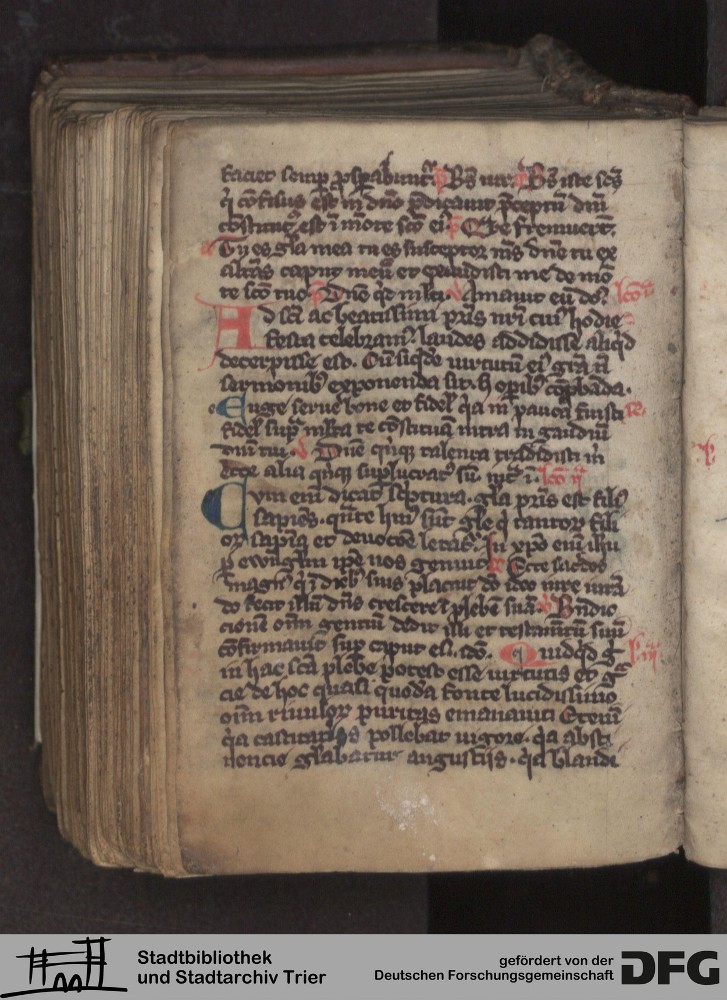 faciet semp̲ psp̲abunt᷑. ps̄ Bt̄s uir a Bt̄s iste sc̄s
q̇ cōfisus est in dn̄o p̄dicauit p̄ceptū dn̄i
cōstitut᷒ est ī mōte scō ei᷒ ps̄ Q̄re fremuert̄.
a Tu es gl̄a mea tu es susceptor m̄s dn̄e tu ex
altas caput meū et exaudisti me de mō
te scō tuo ps̄ Dn̄e q̇d ml̄ti. v Amauit eū do᷒. lc̄o
Ad scī ac beatissimi pr̄is nr̄i cui᷒ hodie
festa celebram᷒ laudes addidisse aliq̇d
decerpisse est. Cū siq̇de uirtutū ei᷒ gr̄a n̄
sermonib᷒ exponenda sit. s̄ opib᷒ cōp̲bāda.
Euge serue bone et fidel᷒ q̇a in pauca fuisti R.
fidel᷒ sup̲ ml̄ta te cōstituā intra in gaudiū
dn̄i tui. v Dn̄e qṅq̇ talenta tradidisti m̄
ecce alia qṅq̇ suplucrat᷒ sū. int̄. lc̄o ij
Cvm enī dicat sc̄ptura. gl̄a pr̄is est fili᷒
sapiēs. qn̄te hui᷒ sūt gl̄e q̇ tantoꝝ fili
oꝝ sapīa et deuotōe letat᷑. In xp̄o enī ih̄u
p̲ ewāgl̄m ip̄e uos genuit R Ecce sacdos
magn᷒ q̇ ī dieb᷒ suis placuit dō ideo iure iurā
do fecit illū dn̄s crescere ī plebē suā. v Bn̄dic
cionē om̄ gentiū dedit illi et testam̄tū suū
cōfirmauit sup̲ caput ei᷒. Quidq̇d g᷑ l. iij
in hac sc̄a plebe potest esse uirtutis et gr̄
cie de hoc quasi quoda fonte lucidissimo
om̄ riuuloꝝ puritas emanauit Etenī
q̇a castitatis pollebat uigore. q̇a absti
nencie gl̄abatur augustijs. q̇a blandi
Stadtbibliothek
und Stadtarchiv Trier
gefördert von der
Deutschen Forschungsgemeinschaft
DFG